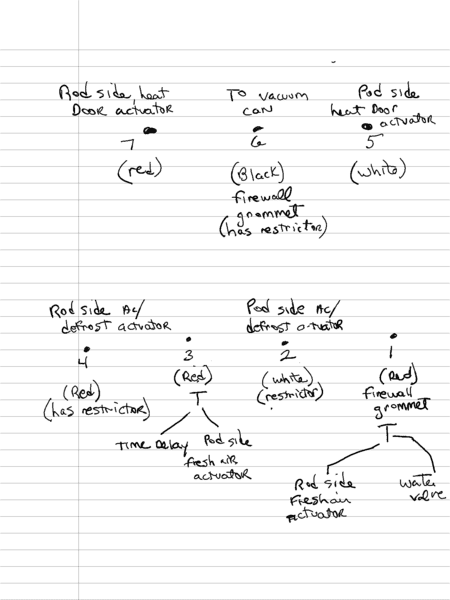 Rod side heat
Door actuator
7
(red)
To vacuum
can
6
(Black)
firewall
grommet
(has restrictor)
Pod side
heat Door
actuator
5
(white)
Rod side AC/
defrost actuator
4
(Red)
(has restrictor)
3
(Red)
T
Time Delay
Pod side
fresh air
actuator
Pod side AC/
defrost actuator
2
(white)
(restrictor)
1
(Red)
firewall
grommet
T
Rod side
Fresh air
actuator
water
valve